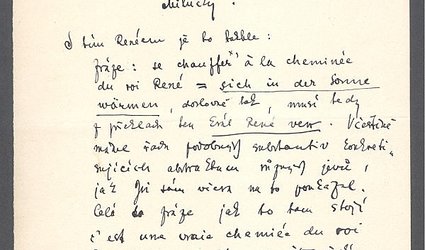 S tím Reném je to takhle:
fráze: se chauffer à la cheminée
du roi René = sich in der Sonne
wärmen, doslovně tak, musí tedy
z překladu ten Král René ven. Vůbec
máme řadu podobných substantiv konkreti-
sujících abstraktum různých jevů,
jak Jsi sám včera na to poukázal.
Celá fráze jak to tam stojí
c'est une vraie cheminée du roi